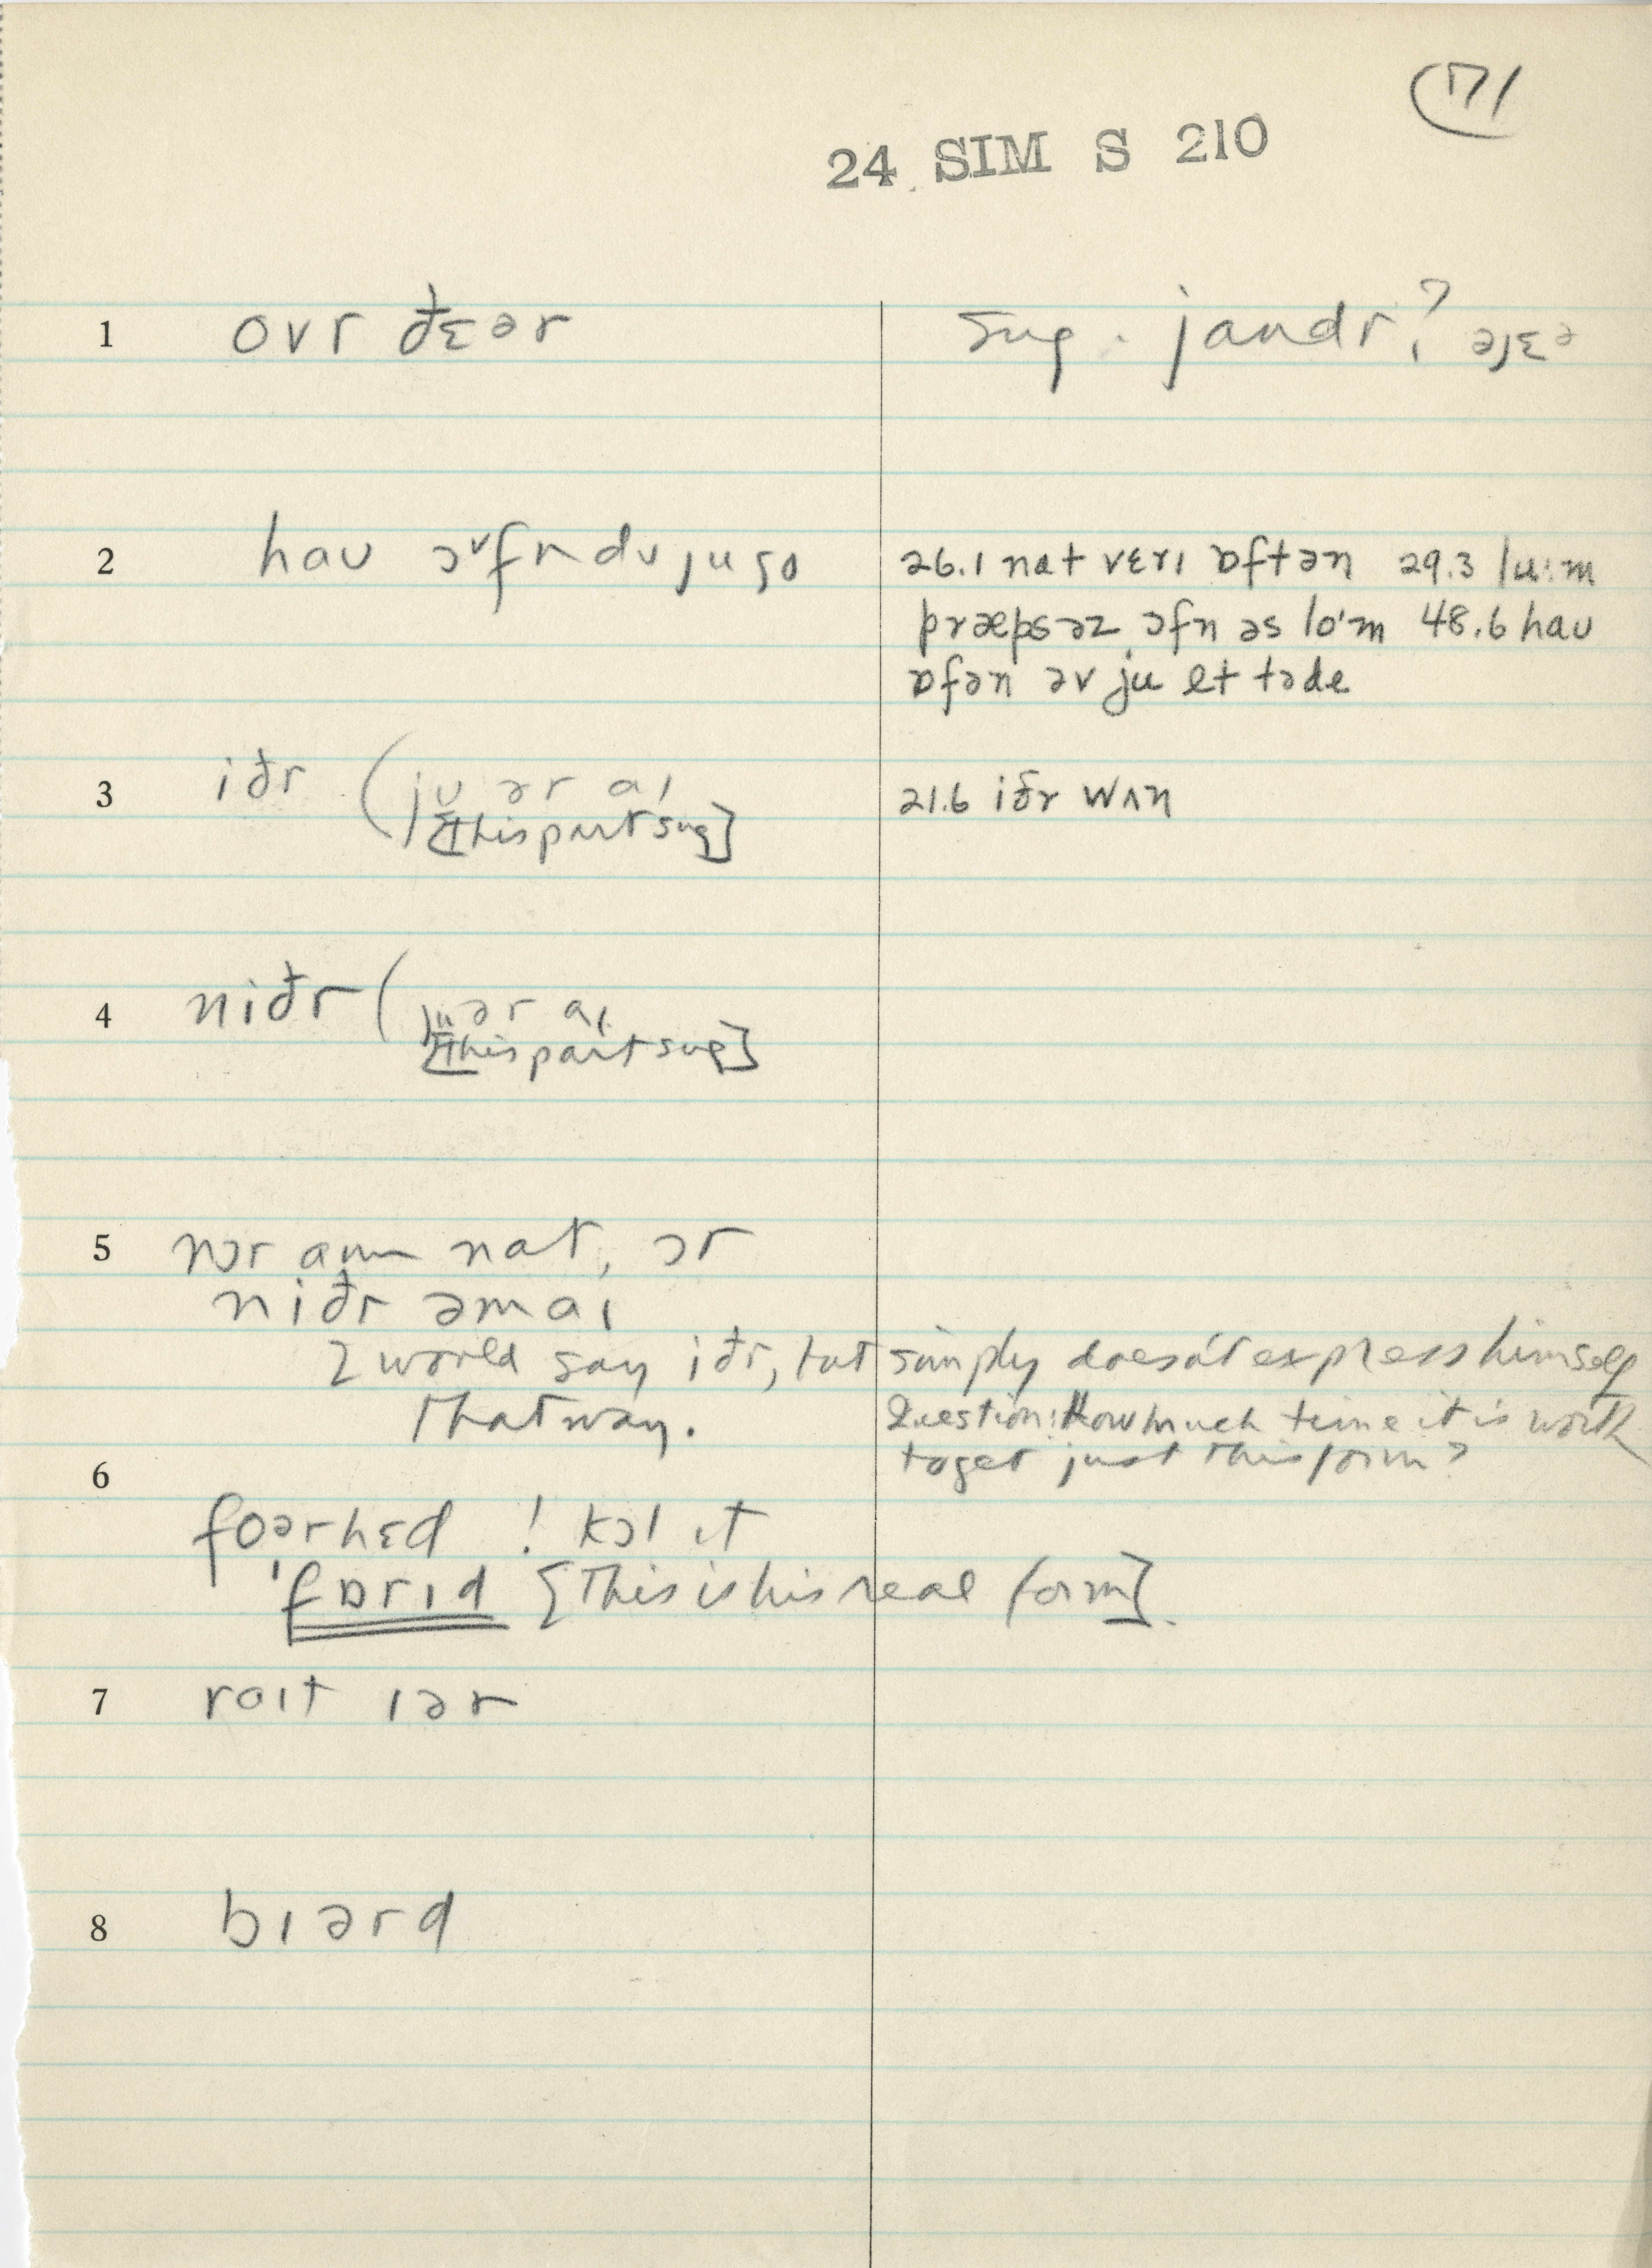 171
24 SIM S 210
1 ovr ðɛər sug. jandr? əjɛə
2 hau ɔᵛfn dʋ ju go 26.1 nat vɛrɪ ɒftən 29.3 lu:m
præpsəz ɔfn əs lo·m 48.6 hau
ɒfən əv ju et təde
3 iðr (jʊ ər aɪ 21.6 iðr wʌn
[this part sug]
4 niðr (ju ər aɪ
[this part sug]
5 nɔr aɪm nat, ɔr
niðr əm aɪ
I would say iðr, but simply doesn't express himself
that way. Question: How much time it is worth
to get just this form?
6
foərhɛd ! kɔl ɪt
'fɒrɪd [This is his real form].
7 raɪt ɪər
8 bɪərd